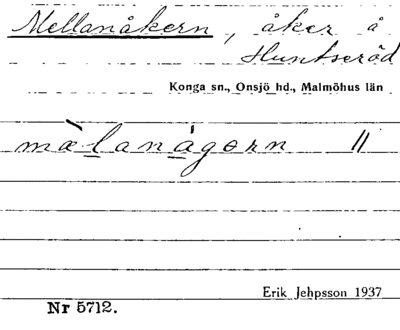 Mellanåkern, åker å
Huntseröd
Konga sn., Onsjö hd., Malmöhus län
mæ̀lanágorn ||
Erik Jehpsson 1937
Nr 5712.